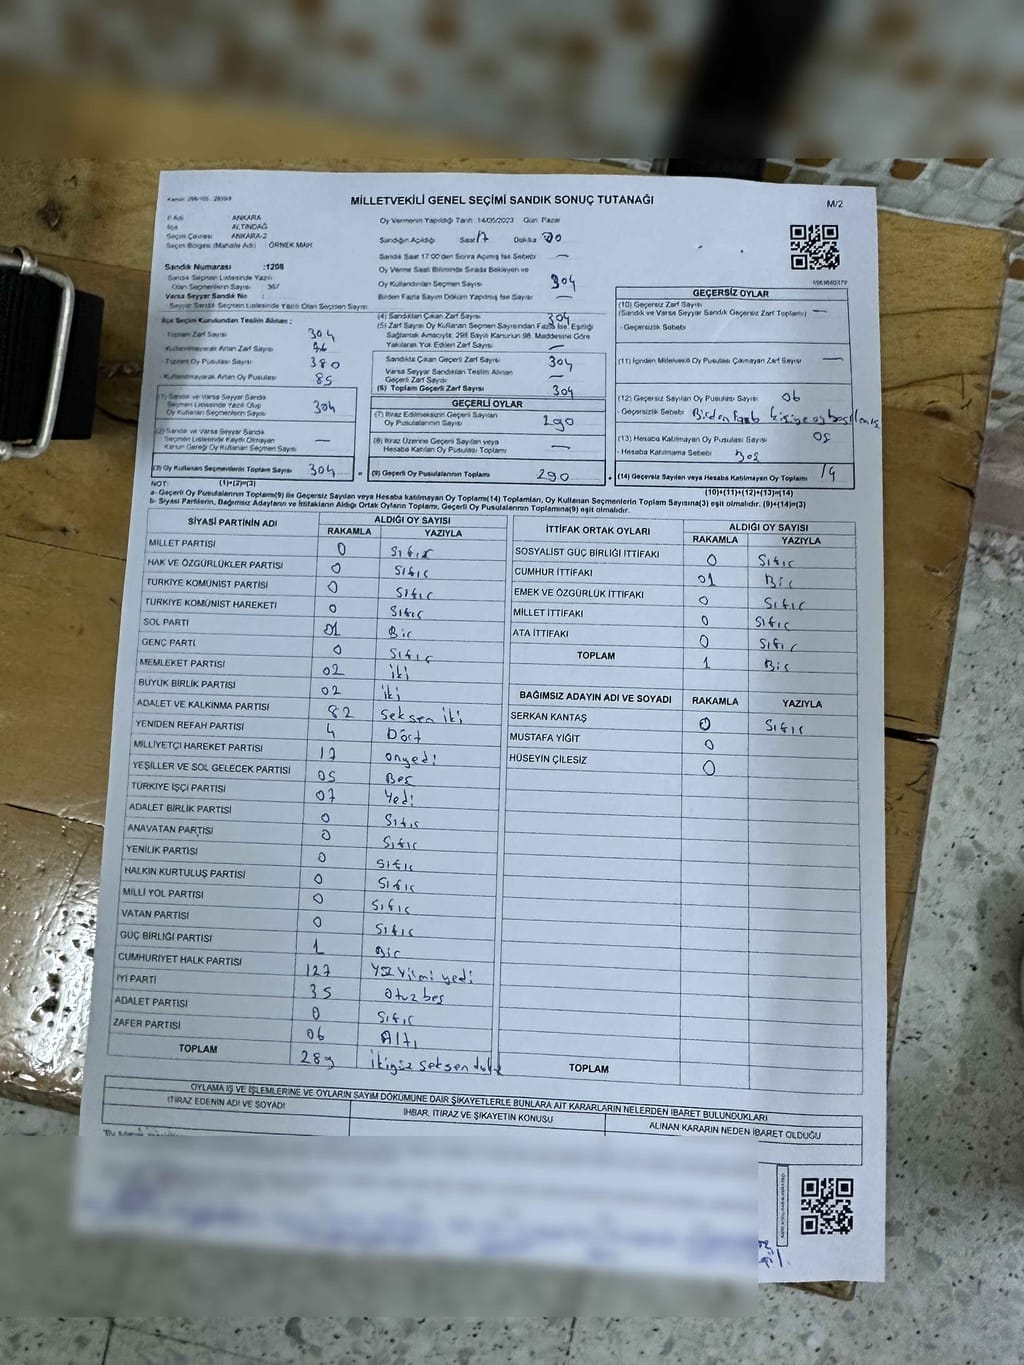 MİLLETVEKİLİ GENEL SEÇİMİ SANDIK SONUÇ TUTANAĞI
M/2
İl Adı ANKARA
İlçe ALTINDAĞ
Seçim Çevresi ANKARA-2
Seçim Bölgesi (Mahalle Adı) ÖRNEK MAH
Oy Vermenin Yapıldığı Tarih 14/05/2023 Gün: Pazar
Sandığın Açıldığı Saat 17 Dakika 00
Sandık Saat 17:00'den Sonra Açılmış İse Sebebi —
Oy Verme Saati Bitiminde Sırada Bekleyen ve
Oy Kullandırılan Seçmen Sayısı 304
Birden Fazla Sayım Döküm Yapılmış İse Sayısı —
Sandık Numarası :1208
Sandık Seçmen Listesinde Yazılı
Olan Seçmenlerin Sayısı
Varsa Seyyar Sandık No :
Seyyar Sandık Seçmen Listesinde Yazılı Olan Seçmen Sayısı
İlçe Seçim Kurulundan Teslim Alınan ;
- Toplam Zarf Sayısı 304
- Kullanılmayarak Artan Zarf Sayısı
- Toplam Oy Pusulası Sayısı 380
- Kullanılmayarak Artan Oy Pusulası 85
(1) Sandık ve Varsa Seyyar Sandık
Seçmen Listesinde Yazılı Olup
Oy Kullanan Seçmenlerin Sayısı 304
(2) Sandık ve Varsa Seyyar Sandık
Seçmen Listesinde Kayıtlı Olmayan
Kanun Gereği Oy Kullanan Seçmen Sayısı —
(3) Oy Kullanan Seçmenlerin Toplam Sayısı 304
(1)+(2)=(3)
(4) Sandıktan Çıkan Zarf Sayısı 304
(5) Zarf Sayısı Oy Kullanan Seçmen Sayısından Fazla İse, Eşitliği
Sağlamak Amacıyla, 298 Sayılı Kanunun 98. Maddesine Göre
Yakılarak Yok Edilen Zarf Sayısı —
Sandıkta Çıkan Geçerli Zarf Sayısı 304
Varsa Seyyar Sandıktan Teslim Alınan
Geçerli Zarf Sayısı —
(6) Toplam Geçerli Zarf Sayısı 304
GEÇERLİ OYLAR
(7) İtiraz Edilmeksizin Geçerli Sayılan
Oy Pusulalarının Sayısı 290
(8) İtiraz Üzerine Geçerli Sayılan veya
Hesaba Katılan Oy Pusulası Sayısı —
(9) Geçerli Oy Pusulalarının Toplamı 290
GEÇERSİZ OYLAR
(10) Geçersiz Zarf Sayısı
(Sandık ve Varsa Seyyar Sandık Geçersiz Zarf Toplamı) —
- Geçersizlik Sebebi
(11) İçinden Milletvekili Oy Pusulası Çıkmayan Zarf Sayısı —
(12) Geçersiz Sayılan Oy Pusulası Sayısı 06
- Geçersizlik Sebebi Birden fazla kişiye oy basılmış
(13) Hesaba Katılmayan Oy Pusulası Sayısı 08
- Hesaba Katılmama Sebebi
(14) Geçersiz Sayılan veya Hesaba Katılmayan Oy Toplamı 14
(10)+(11)+(12)+(13)=(14)
NOT:
a- Geçerli Oy Pusulalarının Toplamı(9) ile Geçersiz Sayılan veya Hesaba katılmayan Oy Toplamı(14) Toplamları, Oy Kullanan Seçmenlerin Toplam Sayısına(3) eşit olmalıdır. (9)+(14)=(3)
b- Siyasi Partilerin, Bağımsız Adayların ve İttifakların Aldığı Ortak Oyların Toplamı, Geçerli Oy Pusulalarının Toplamına(9) eşit olmalıdır.
SİYASİ PARTİNİN ADI ALDIĞI OY SAYISI
RAKAMLA YAZIYLA
MİLLET PARTİSİ 0 Sıfır
HAK VE ÖZGÜRLÜKLER PARTİSİ 0 Sıfır
TÜRKİYE KOMÜNİST PARTİSİ 0 Sıfır
TÜRKİYE KOMÜNİST HAREKETİ 0 Sıfır
SOL PARTİ 01 Bir
GENÇ PARTİ 0 Sıfır
MEMLEKET PARTİSİ 02 iki
BÜYÜK BİRLİK PARTİSİ 02 iki
ADALET VE KALKINMA PARTİSİ 82 Seksen iki
YENİDEN REFAH PARTİSİ 4 Dört
MİLLİYETÇİ HAREKET PARTİSİ 17 onyedi
YEŞİLLER VE SOL GELECEK PARTİSİ 05 Beş
TÜRKİYE İŞÇİ PARTİSİ 07 Yedi
ADALET BİRLİK PARTİSİ 0 Sıfır
ANAVATAN PARTİSİ 0 Sıfır
YENİLİK PARTİSİ 0 Sıfır
HALKIN KURTULUŞ PARTİSİ 0 Sıfır
MİLLİ YOL PARTİSİ 0 Sıfır
VATAN PARTİSİ 0 Sıfır
GÜÇ BİRLİĞİ PARTİSİ 1 Bir
CUMHURİYET HALK PARTİSİ 127 yüz yirmi yedi
İYİ PARTİ 35 otuz beş
ADALET PARTİSİ 0 Sıfır
ZAFER PARTİSİ 06 Altı
TOPLAM 289 ikiyüz seksen dokuz
İTTİFAK ORTAK OYLARI ALDIĞI OY SAYISI
RAKAMLA YAZIYLA
SOSYALİST GÜÇ BİRLİĞİ İTTİFAKI 0 Sıfır
CUMHUR İTTİFAKI 01 Bir
EMEK VE ÖZGÜRLÜK İTTİFAKI 0 Sıfır
MİLLET İTTİFAKI 0 Sıfır
ATA İTTİFAKI 0 Sıfır
TOPLAM 1 Bir
BAĞIMSIZ ADAYIN ADI VE SOYADI RAKAMLA YAZIYLA
SERKAN KANTAŞ 0 Sıfır
MUSTAFA YİĞİT 0
HÜSEYİN ÇİLESİZ 0
TOPLAM
OYLAMA İŞ VE İŞLEMLERİNE VE OYLARIN SAYIM DÖKÜMÜNE DAİR ŞİKAYETLERLE BUNLARA AİT KARARLARIN NELERDEN İBARET BULUNDUKLARI
İTİRAZ EDENİN ADI VE SOYADI İHBAR, İTİRAZ VE ŞİKAYETİN KONUSU ALINAN KARARIN NEDEN İBARET OLDUĞU